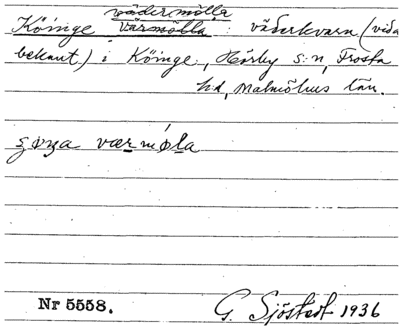 vädermölla
Köinge värmölla : väderkvarn (vida
bekant.) i Köinge, Hörby s:n, Frosta
hd, Malmöhus län.
værmøla
Nr 5558.
G. Sjöstedt 1936